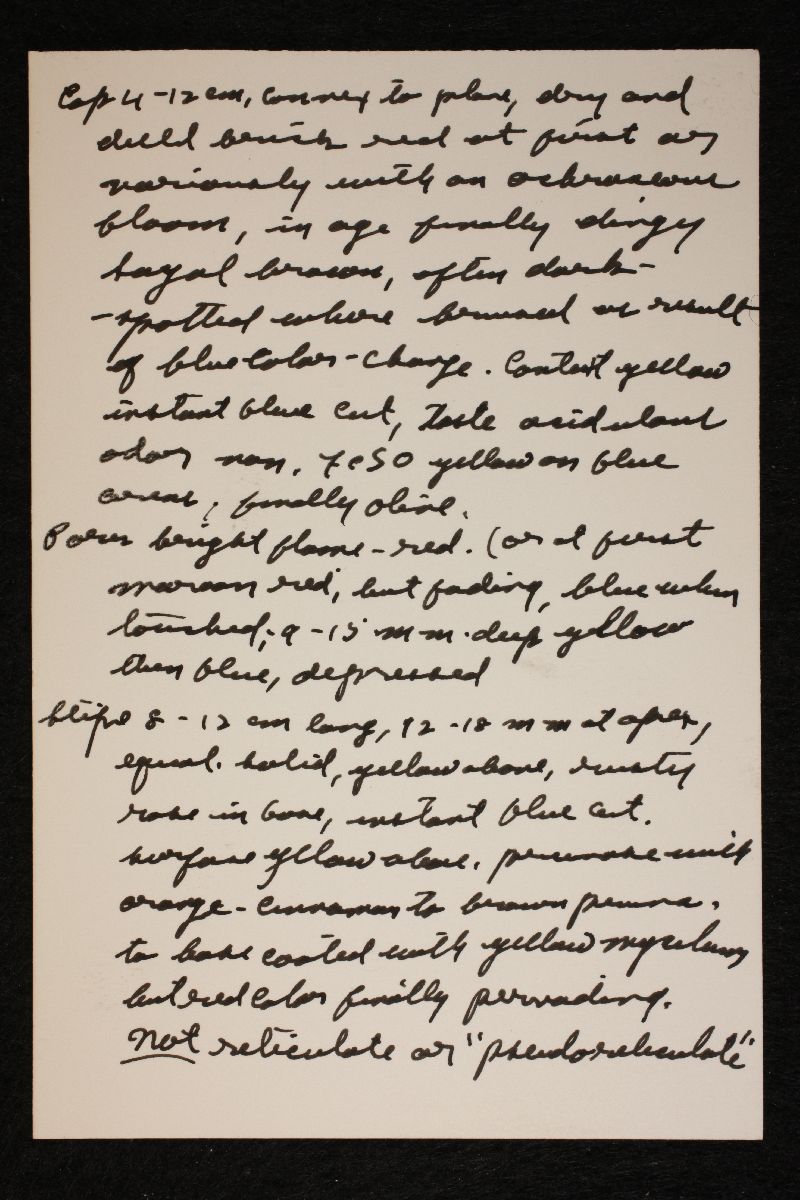 Cap 4-12 cm, convex to plane, dry and
dull brick red at first or
variously with an ochraceous
bloom, in age finally dingy
sayal brown, often dark-
-spotted where bruised as result
of blue color-change. Context yellow
instant blue cut, taste acidulous
odor non. FeSO yellow on blue
areas, finally olive.
Pores bright flame-red. (or at first
maroon red, but fading, blue when
touched; 9-15 mm. deep yellow
then blue, depressed
Stipe 8-12 cm long, 12-18 mm at apex,
equal. solid, yellow above, rusty
rose in base, instant blue cut.
surface yellow above. pruinose with
orange-cinnamon to brown pruina.
to base coated with yellow mycelium
but red color finally pervading.
Not reticulate or "pseudoreticulate"